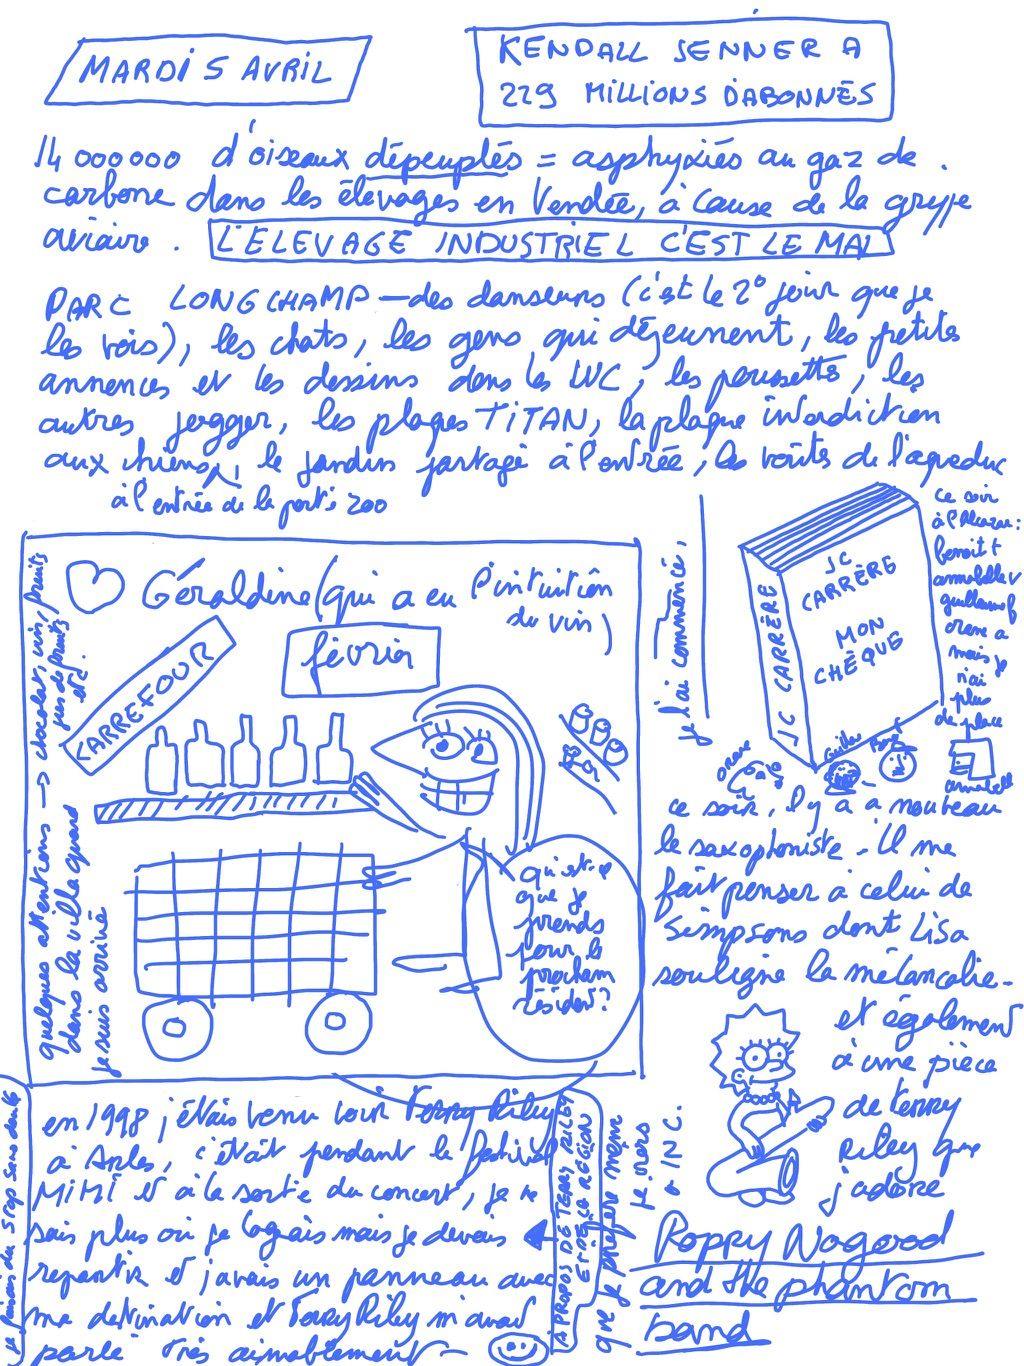 MARDI 5 AVRIL
KENDALL JENNER A
229 MILLIONS D'ABONNÉS
14 000000 d'oiseaux dépeuplés = asphyxiés au gaz de
carbone dans les élevages en Vendée, à cause de la grippe
aviaire. L'ÉLEVAGE INDUSTRIEL C'EST LE MAL
PARC LONGCHAMP — des danseurs (c'est le 2° jour que je
les vois), les chats, les gens qui déjeunent, les petites
annonces et les dessins dans les WC, les poussettes, les
autres jogger, les plaques TITAN, la plaque interdiction
aux chiens, le jardin partagé à l'entrée, les voûtes de l'aqueduc
à l'entrée de la porte zoo
Géraldine (qui a eu l'intuition
du vin)
CARREFOUR
février
quelques attentions → chocolat, vin, fruits
pas de fruits
etc.
dans la villa quand
je suis arrivé
qu'est-ce
que je
prends
pour le
prochain
résident?
j'ai commencé,
JC CARRÈRE
JC
CARRÈRE
MON
CHÈQUE
ce soir
à l'Alcazar:
benoit t
annabelle v
guillaume f
orane a
mais je
n'ai
plus
de place
orane
Guillau
annabelle
ce soir, il y a à nouveau
le saxophoniste. Il me
fait penser à celui de
Simpsons dont Lisa
souligne la mélancolie.
et également
à une pièce
de Terry
Riley que
j'adore
Poppy Nogood
and the phantom
band
que je préfère même
je mers
à IN C.
A PROPOS DE TERRY RILEY
ET DE LA RÉGION
en 1998 j'étais venu voir Terry Riley
à Arles, c'était pendant le festival
MIMI et à la sortie du concert, je ne
sais plus où je logeais mais je devais
repartir et j'avais un panneau avec
ma destination et Terry Riley m'avait
parlé très aimablement
je faisais du stop sans doute